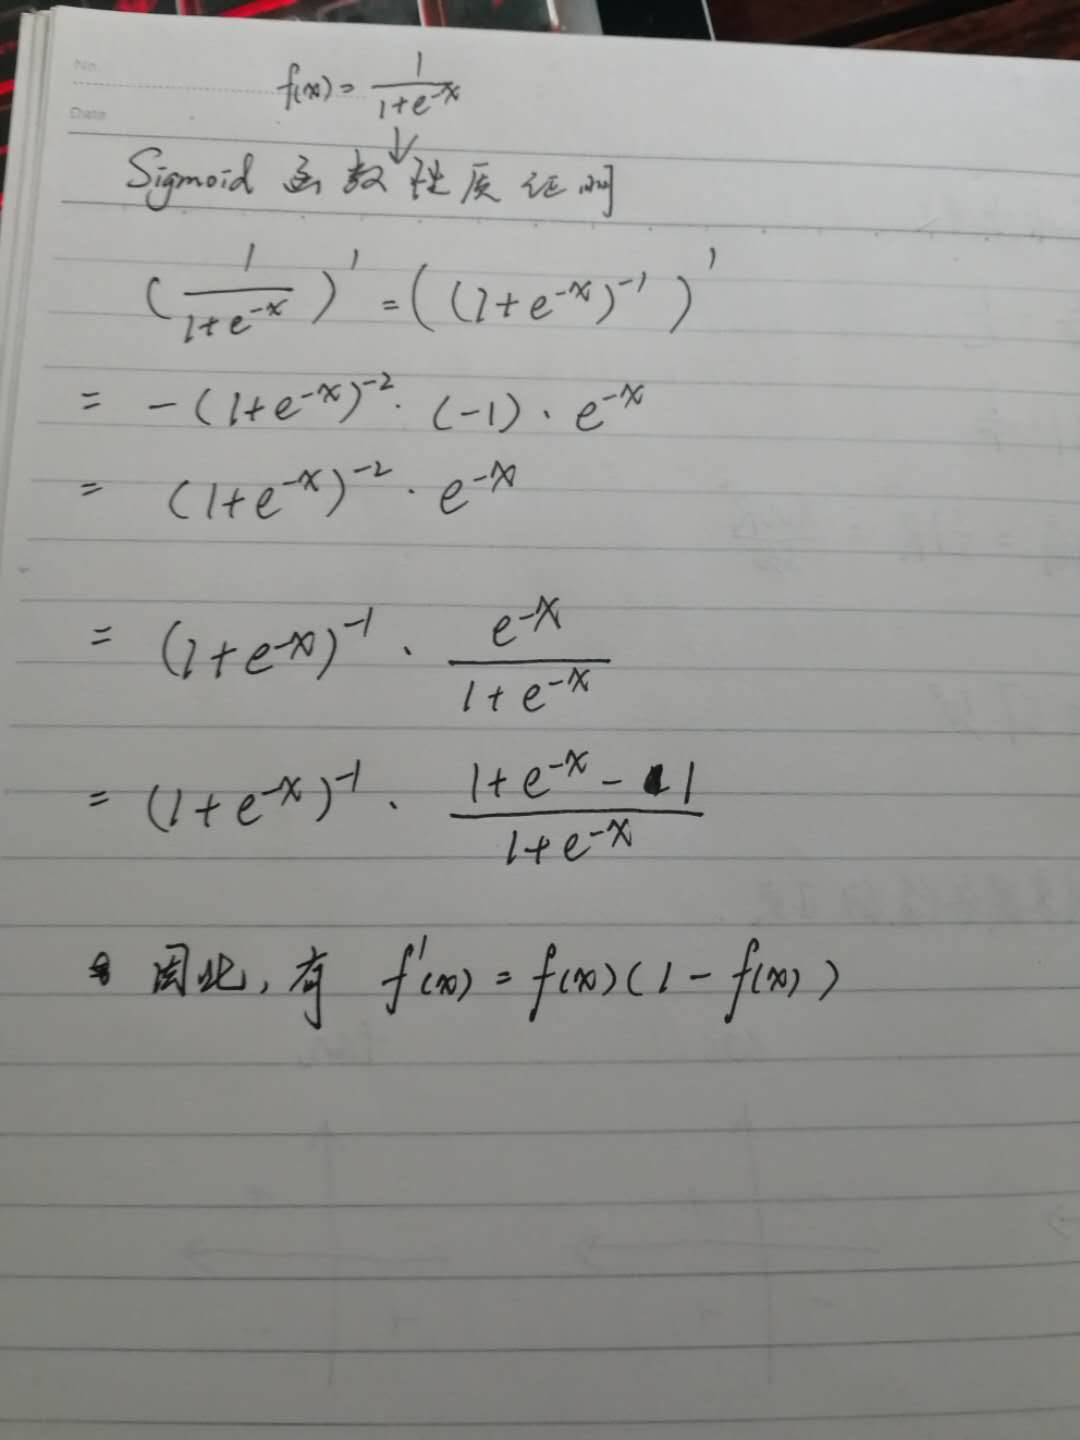 No.
f(x) = 1/(1+e^-x)
Date
↓
Sigmoid 函数性质证明
(1/(1+e^-x))' = ((1+e^-x)^-1)'
= -(1+e^-x)^-2 · (-1) · e^-x
= (1+e^-x)^-2 · e^-x
= (1+e^-x)^-1 · e^-x/(1+e^-x)
= (1+e^-x)^-1 · (1+e^-x - 1)/(1+e^-x)
因此, 有 f'(x) = f(x)(1 - f(x))